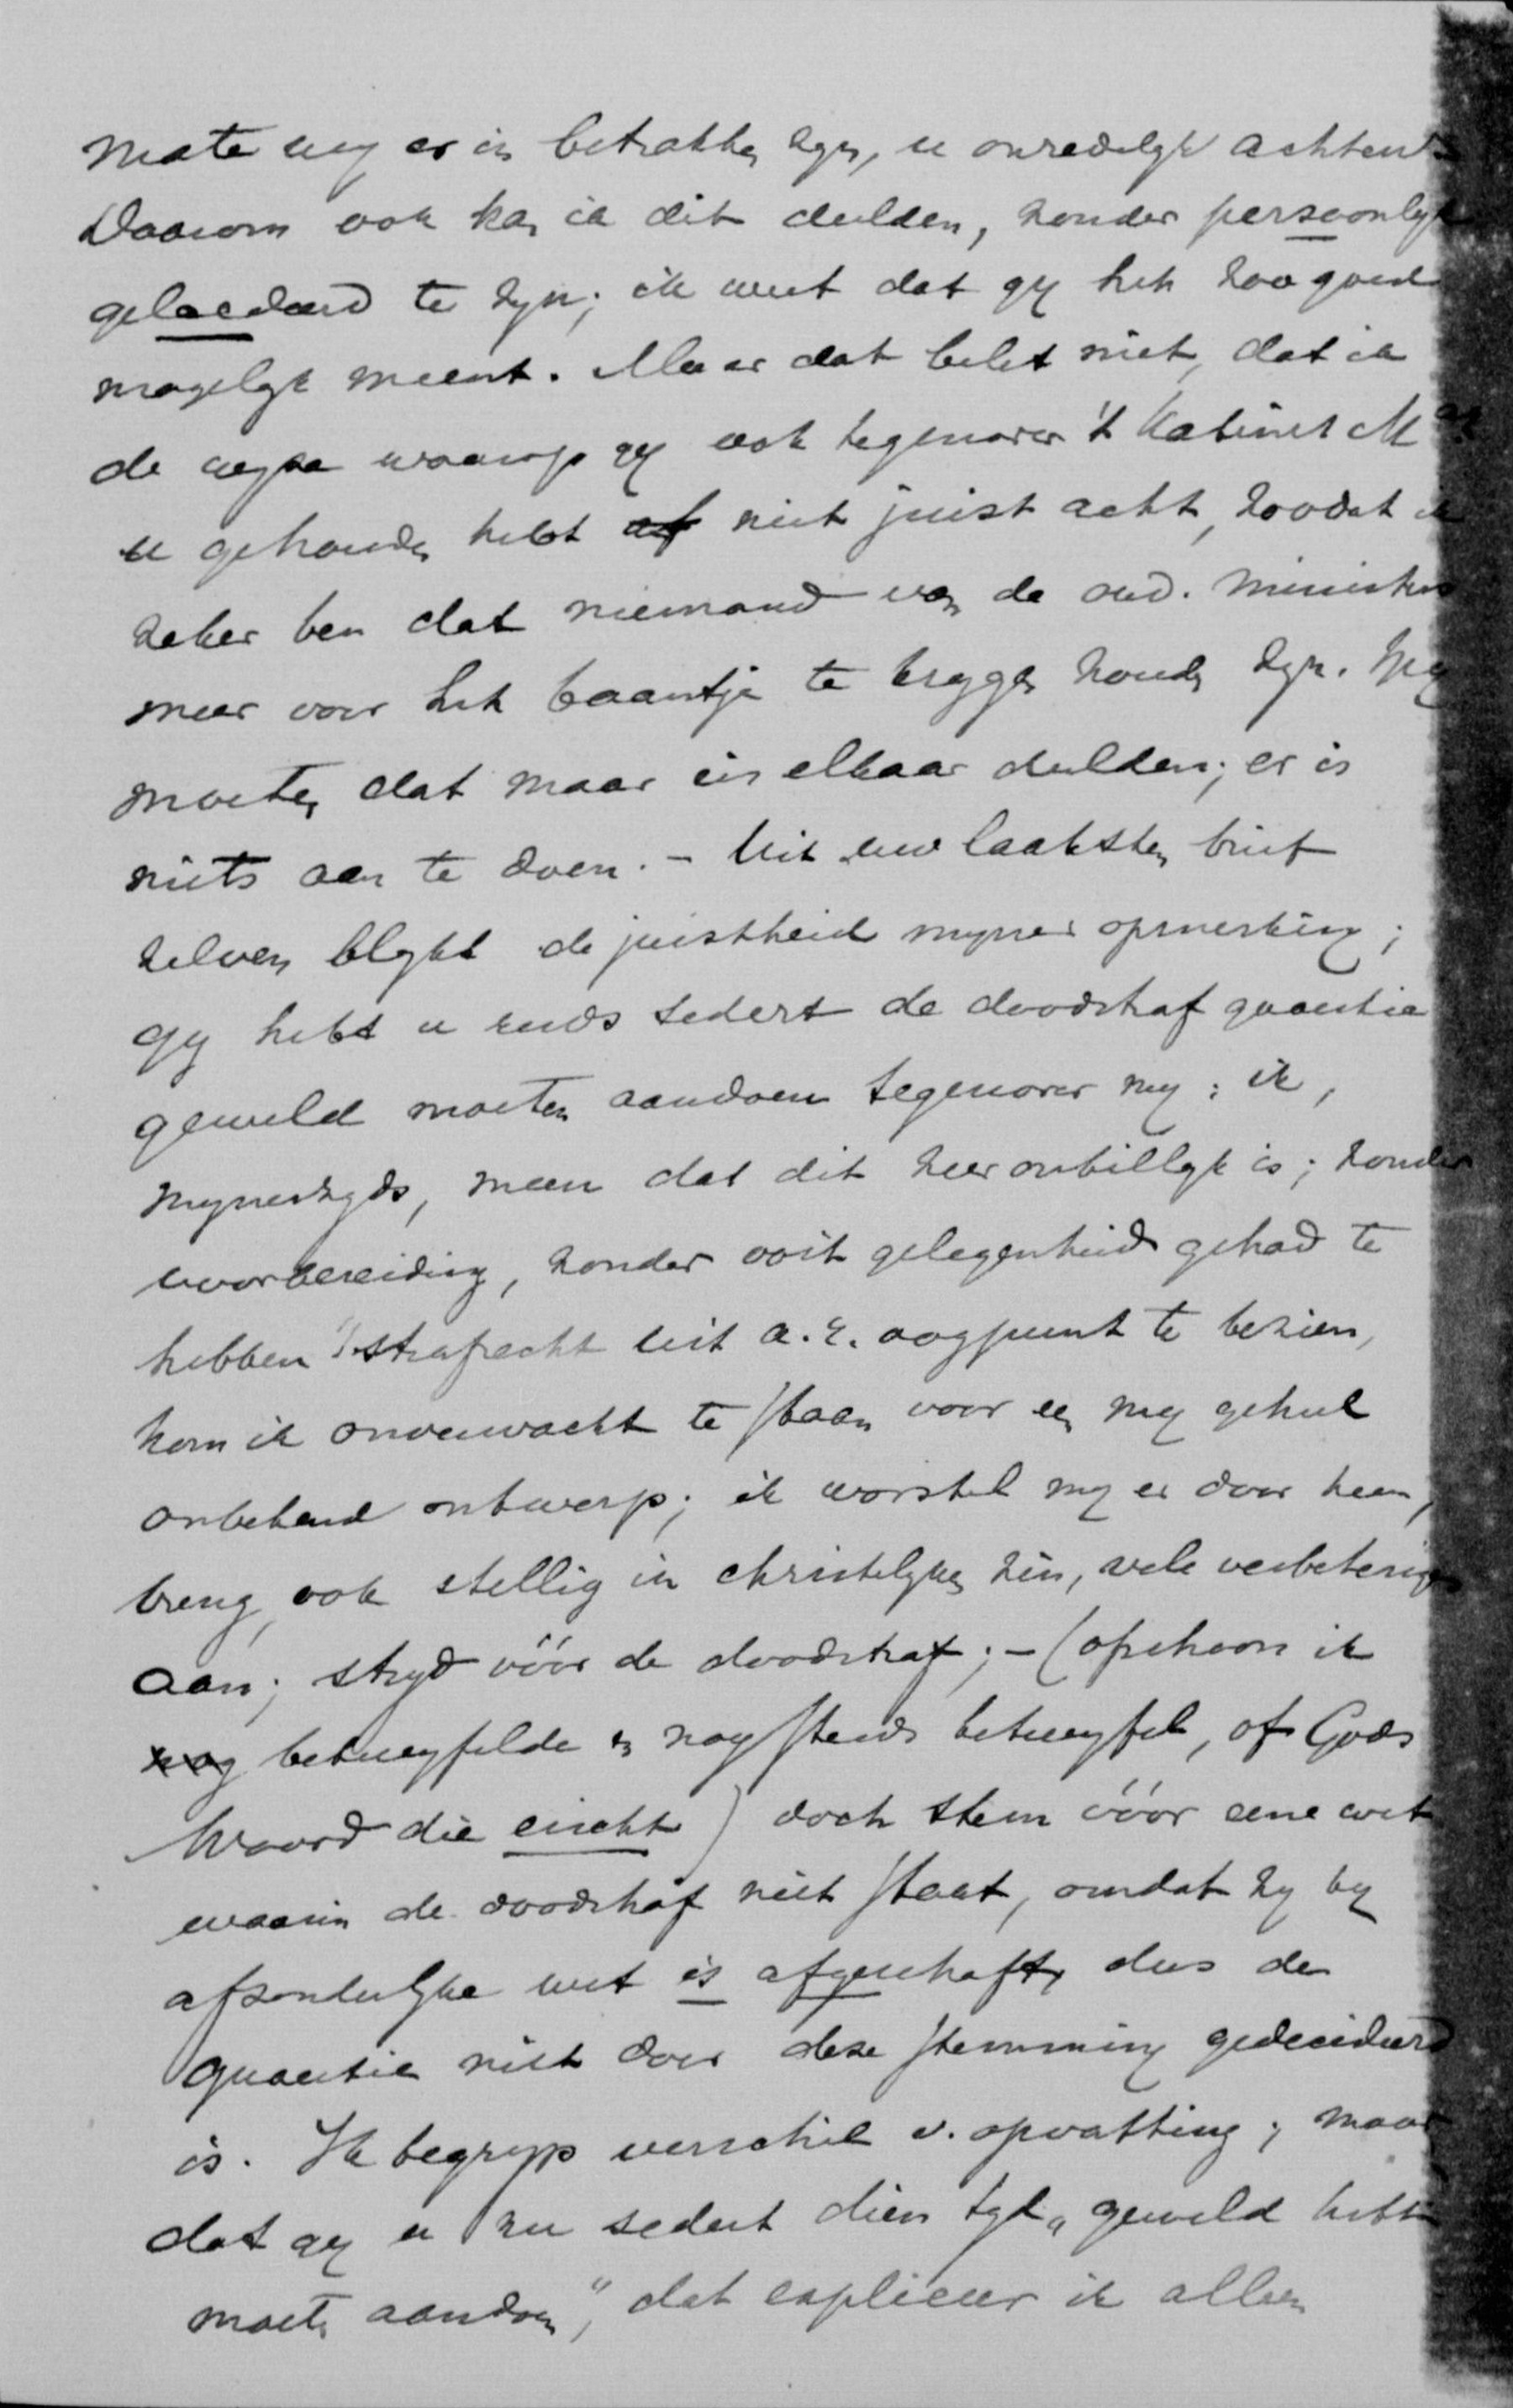 mate wij er in betrokken zijn, u onredelyk achtend.
Daarom ook kan ik dit dulden, zonder persoonlyk
gelaedeerd te zyn; ik weet dat gy het zoo goed
mogelyk meent. Maar dat belet niet, dat ik
de wyze waarop gy ook tegenover 't Kabinet M
u gehouden hebt af niet juist acht, zoodat ik
zeker ben dat niemand van de oud. ministers
meer voor het baantje te krygen zoude zyn. Wy
moeten dat maar in elkaar dulden; er is
niets aan te doen. – Uit uw laatsten brief
zelven blykt de juistheid myner opmerking;
gy hebt u reeds sedert de doodstraf quaestie
geweld moeten aandoen tegenover my: ik,
mynerzyds, meen dat dit zeer onbillyk is; zonder
voorbereiding, zonder ooit gelegenheid gehad te
hebben 't strafrecht uit a.r. oogpunt te bezien,
kom ik onverwacht te staan voor een my geheel
onbekend ontwerp; ik worstel my er door heen,
breng, ook stellig in christelyken zin, vele verbeteringen
aan; stryd vóór de doodstraf; – (ofschoon ik
nog betwyfelde en nog steeds betwyfel, of Gods
Woord die eischt) doch stem vóór eene wet
waarin de doodstraf niet staat, omdat zy by
afzonderlyke wet is afgeschaft, dus de
quaestie niet door deze stemming gedecideerd
is. Ik begryp verschil v. opvatting; maar
dat gy u nu sedert dien tyd „geweld hebt
moeten aandoen", dat expliceer ik alleen